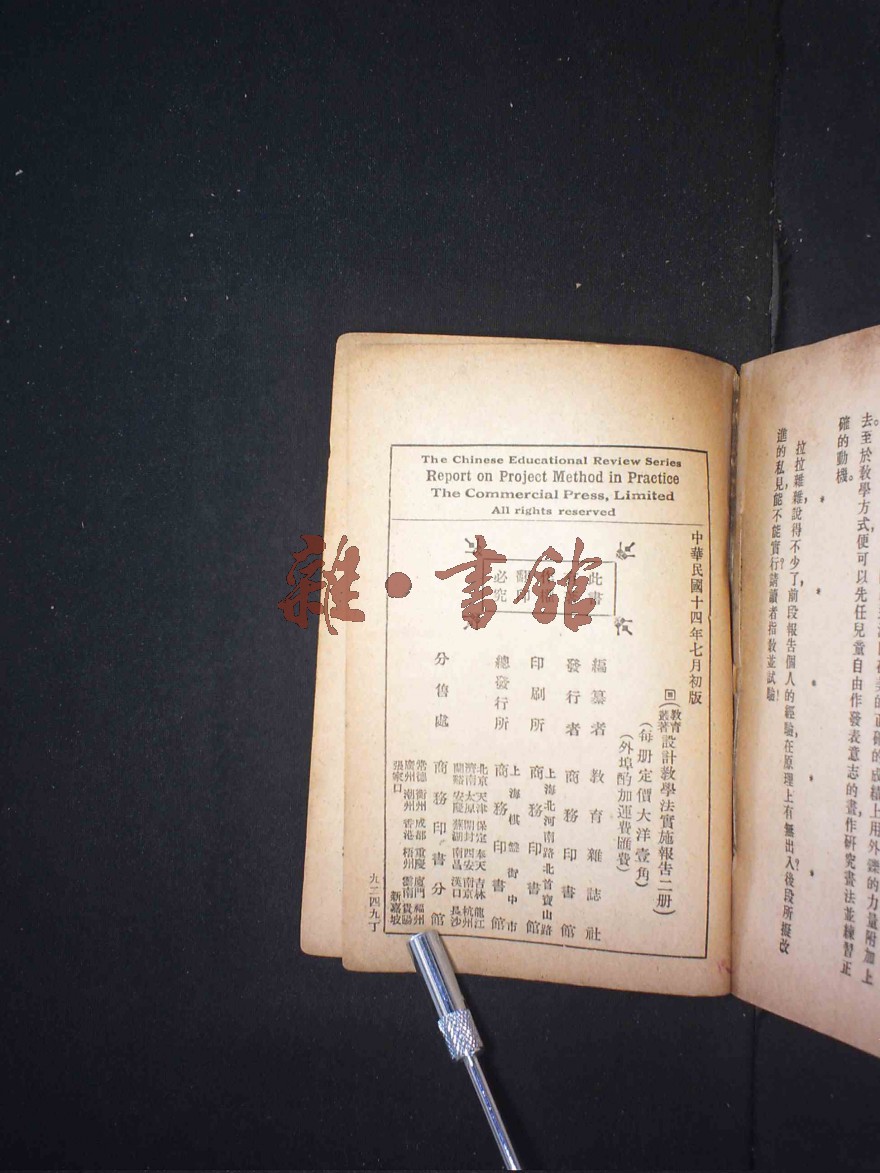 去。至於教學方式,便可以先任兒童自由作發表意志的畫,作研究畫法並練習正
確的動機。
* * * *
拉拉雜雜,說得不少了,前段報告個人的經驗,在原理上有無出入?後段所擬改
進的私見,能不能實行?請讀者指教並試驗!
The Chinese Educational Review Series
Report on Project Method in Practice
The Commercial Press, Limited
All rights reserved
中華民國十四年七月初版
(教育叢著設計教學法實施報告二册)
(每册定價大洋壹角)
(外埠酌加運費匯費)
此書
翻印
必究
編纂者 教育雜誌社
發行者 商務印書館
印刷所 上海北河南路北首寶山路 商務印書館
總發行所 上海棋盤街中市 商務印書館
分售處 商務印書分館
北京 天津 保定 奉天 吉林 龍江
濟南 太原 開封 西安 南京 杭州
蘭谿 安慶 蕪湖 南昌 漢口 長沙
常德 衡州 成都 重慶 廈門 福州
廣州 潮州 香港 梧州 雲南 貴陽
張家口 新嘉坡
九二四九丁
雜·書館